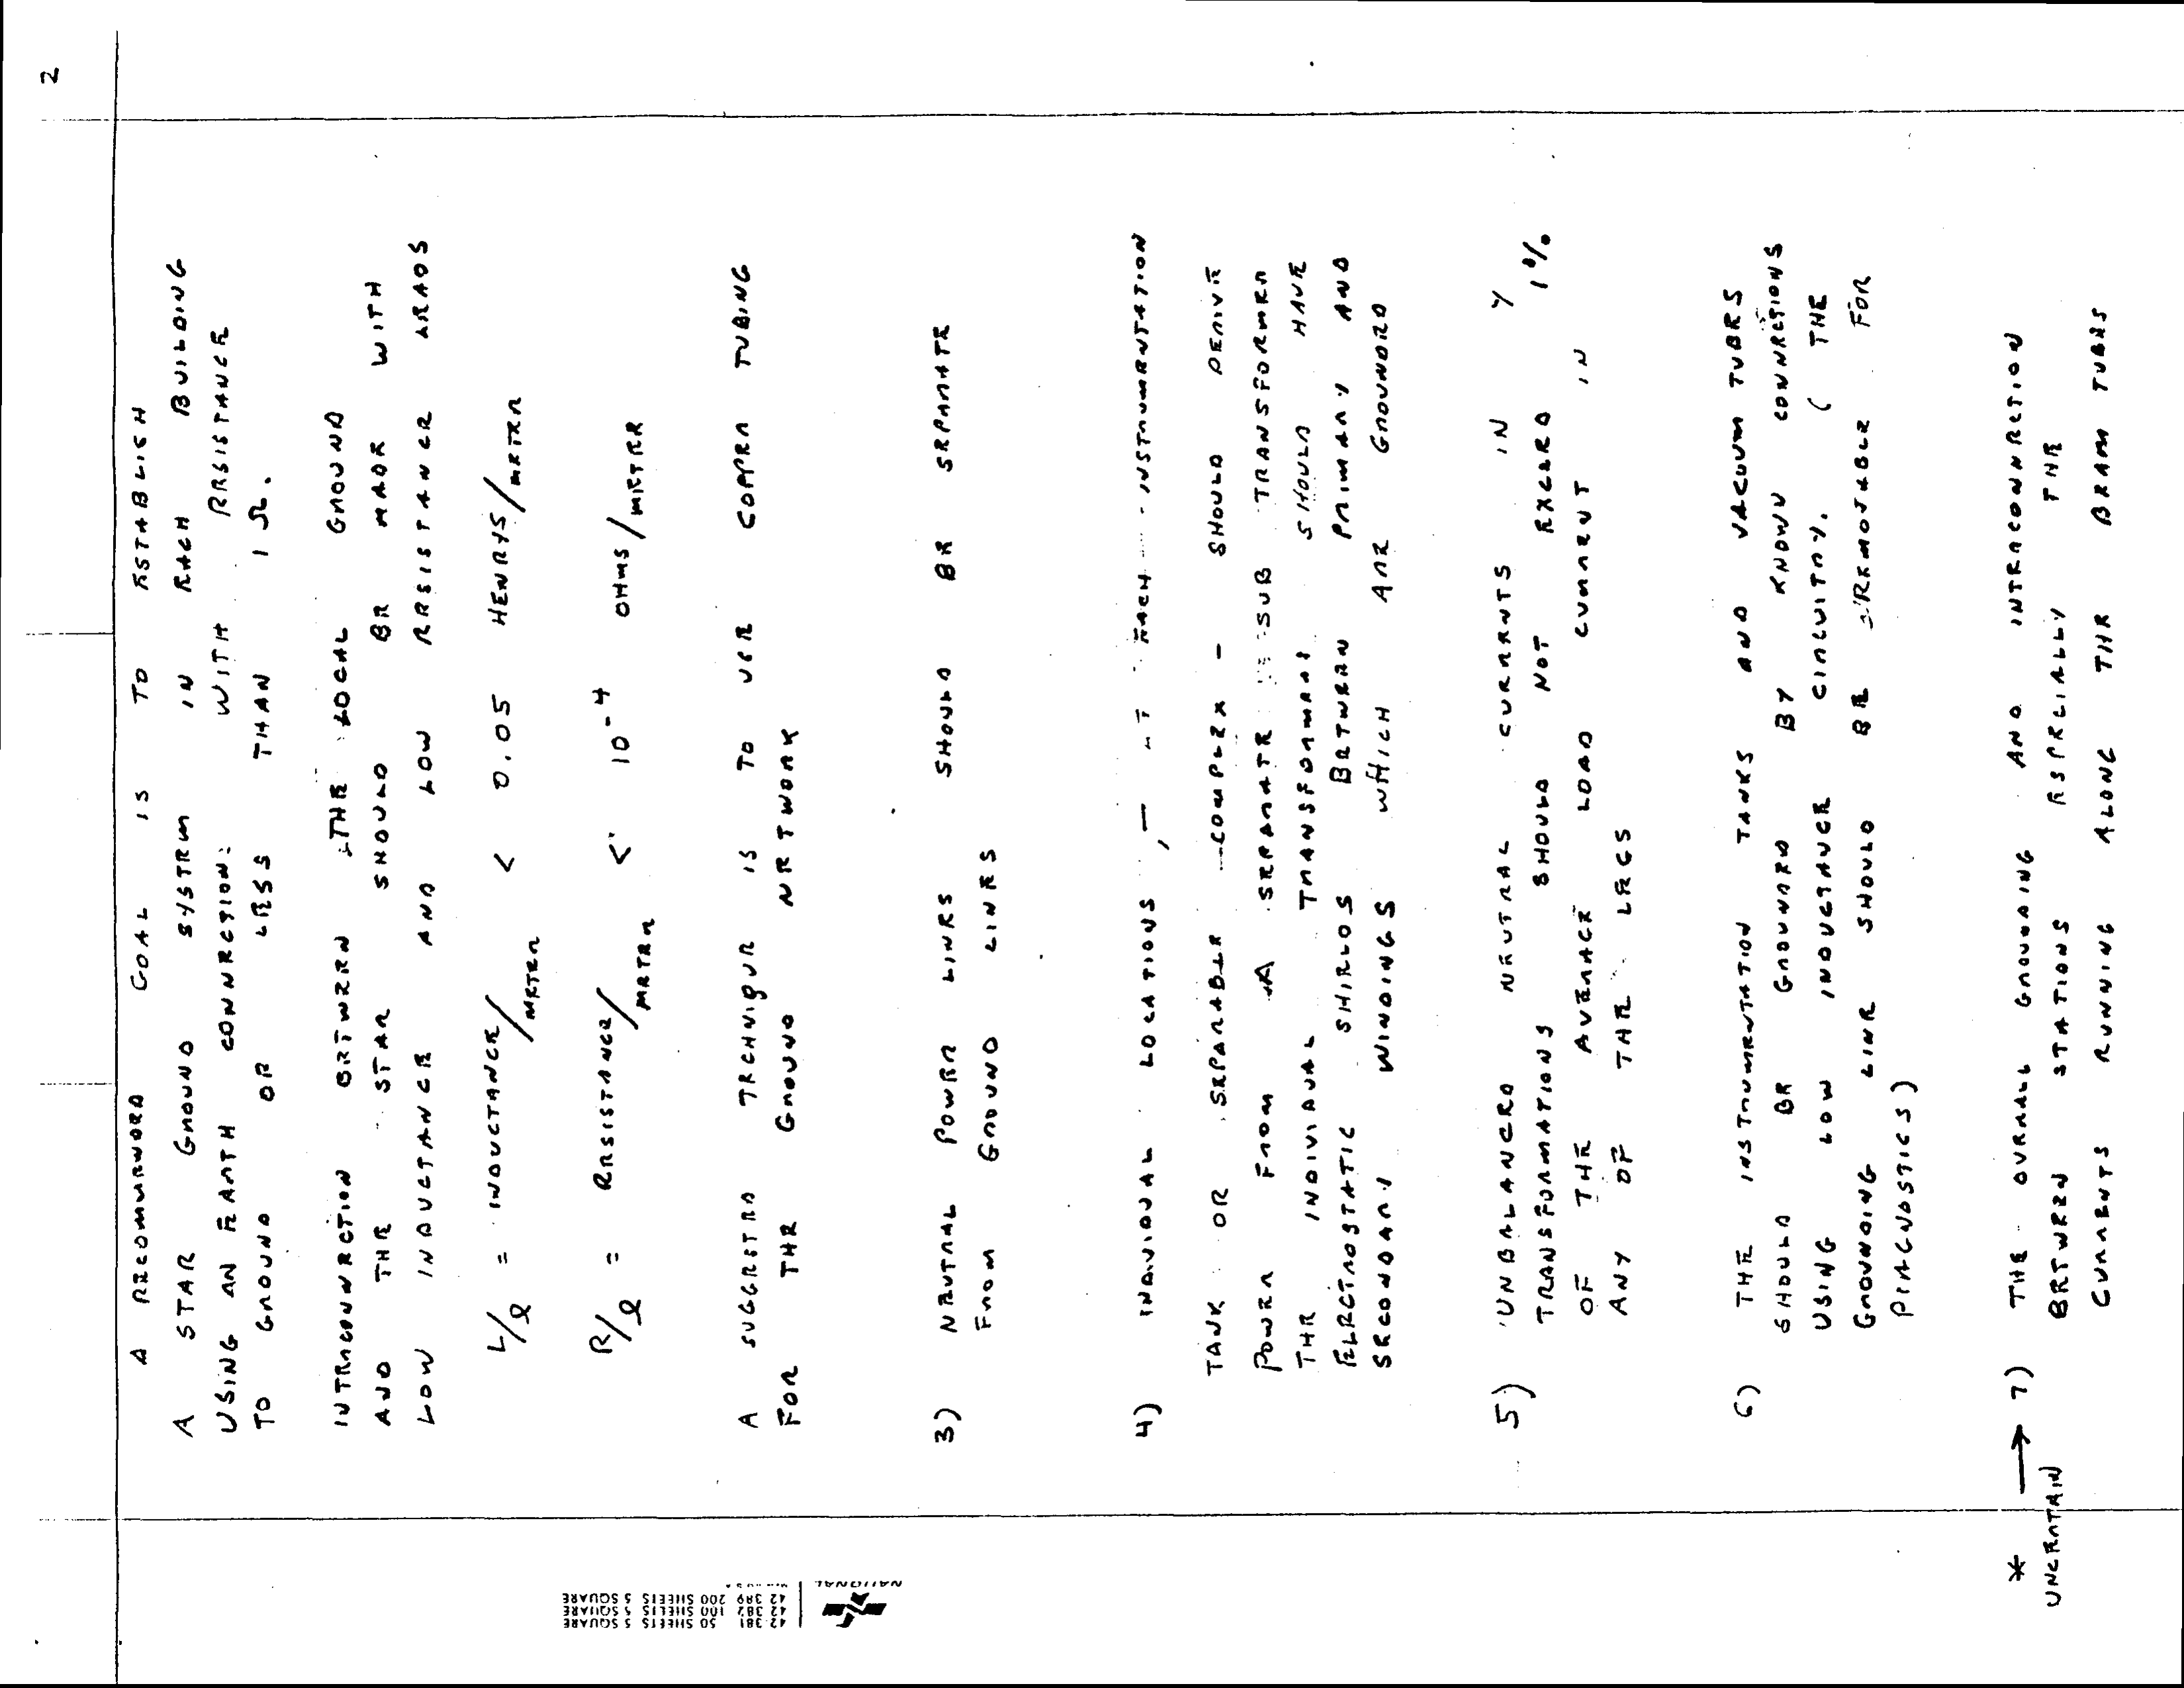 2
A RECOMMENDED GOAL IS TO ESTABLISH
A STAR GROUND SYSTEM IN EACH BUILDING
USING AN EARTH CONNECTION WITH RESISTANCE
TO GROUND OR LESS THAN 1 Ω.
INTRACONNECTION BETWEEN THE LOCAL GROUND
AND THE STAR SHOULD BE MADE WITH
LOW INDUCTANCE AND LOW RESISTANCE LEADS
L/ℓ = INDUCTANCE/METER < 0.05 HENRYS/METER
R/ℓ = RESISTANCE/METER < 10⁻⁴ OHMS/METER
A SUGGESTED TECHNIQUE IS TO USE COPPER TUBING
FOR THE GROUND NETWORK
3) NEUTRAL POWER LINES SHOULD BE SEPARATE
FROM GROUND LINES
4) INDIVIDUAL LOCATIONS, — AT EACH INSTRUMENTATION
TANK OR SEPARABLE COMPLEX - SHOULD DERIVE
POWER FROM A SEPARATE SUB TRANSFORMER
THE INDIVIDUAL TRANSFORMERS SHOULD HAVE
ELECTROSTATIC SHIELDS BETWEEN PRIMARY AND
SECONDARY WINDINGS WHICH ARE GROUNDED
5) UNBALANCED NEUTRAL CURRENTS IN Y
TRANSFORMATIONS SHOULD NOT EXCEED 1%
OF THE AVERAGE LOAD CURRENT IN
ANY OF THE LEGS
6) THE INSTRUMENTATION TANKS AND VACUUM TUBES
SHOULD BE GROUNDED BY KNOWN CONNECTIONS
USING LOW INDUCTANCE CIRCUITRY. ( THE
GROUNDING LINE SHOULD BE REMOVABLE FOR
DIAGNOSTICS)
* → 7) THE OVERALL GROUNDING AND INTRACONNECTION
UNCERTAIN BETWEEN STATIONS ESPECIALLY THE
CURRENTS RUNNING ALONG THE BEAM TUBES
42 381 50 SHEETS 5 SQUARE
42 382 100 SHEETS 5 SQUARE
42 389 200 SHEETS 5 SQUARE
NATIONAL